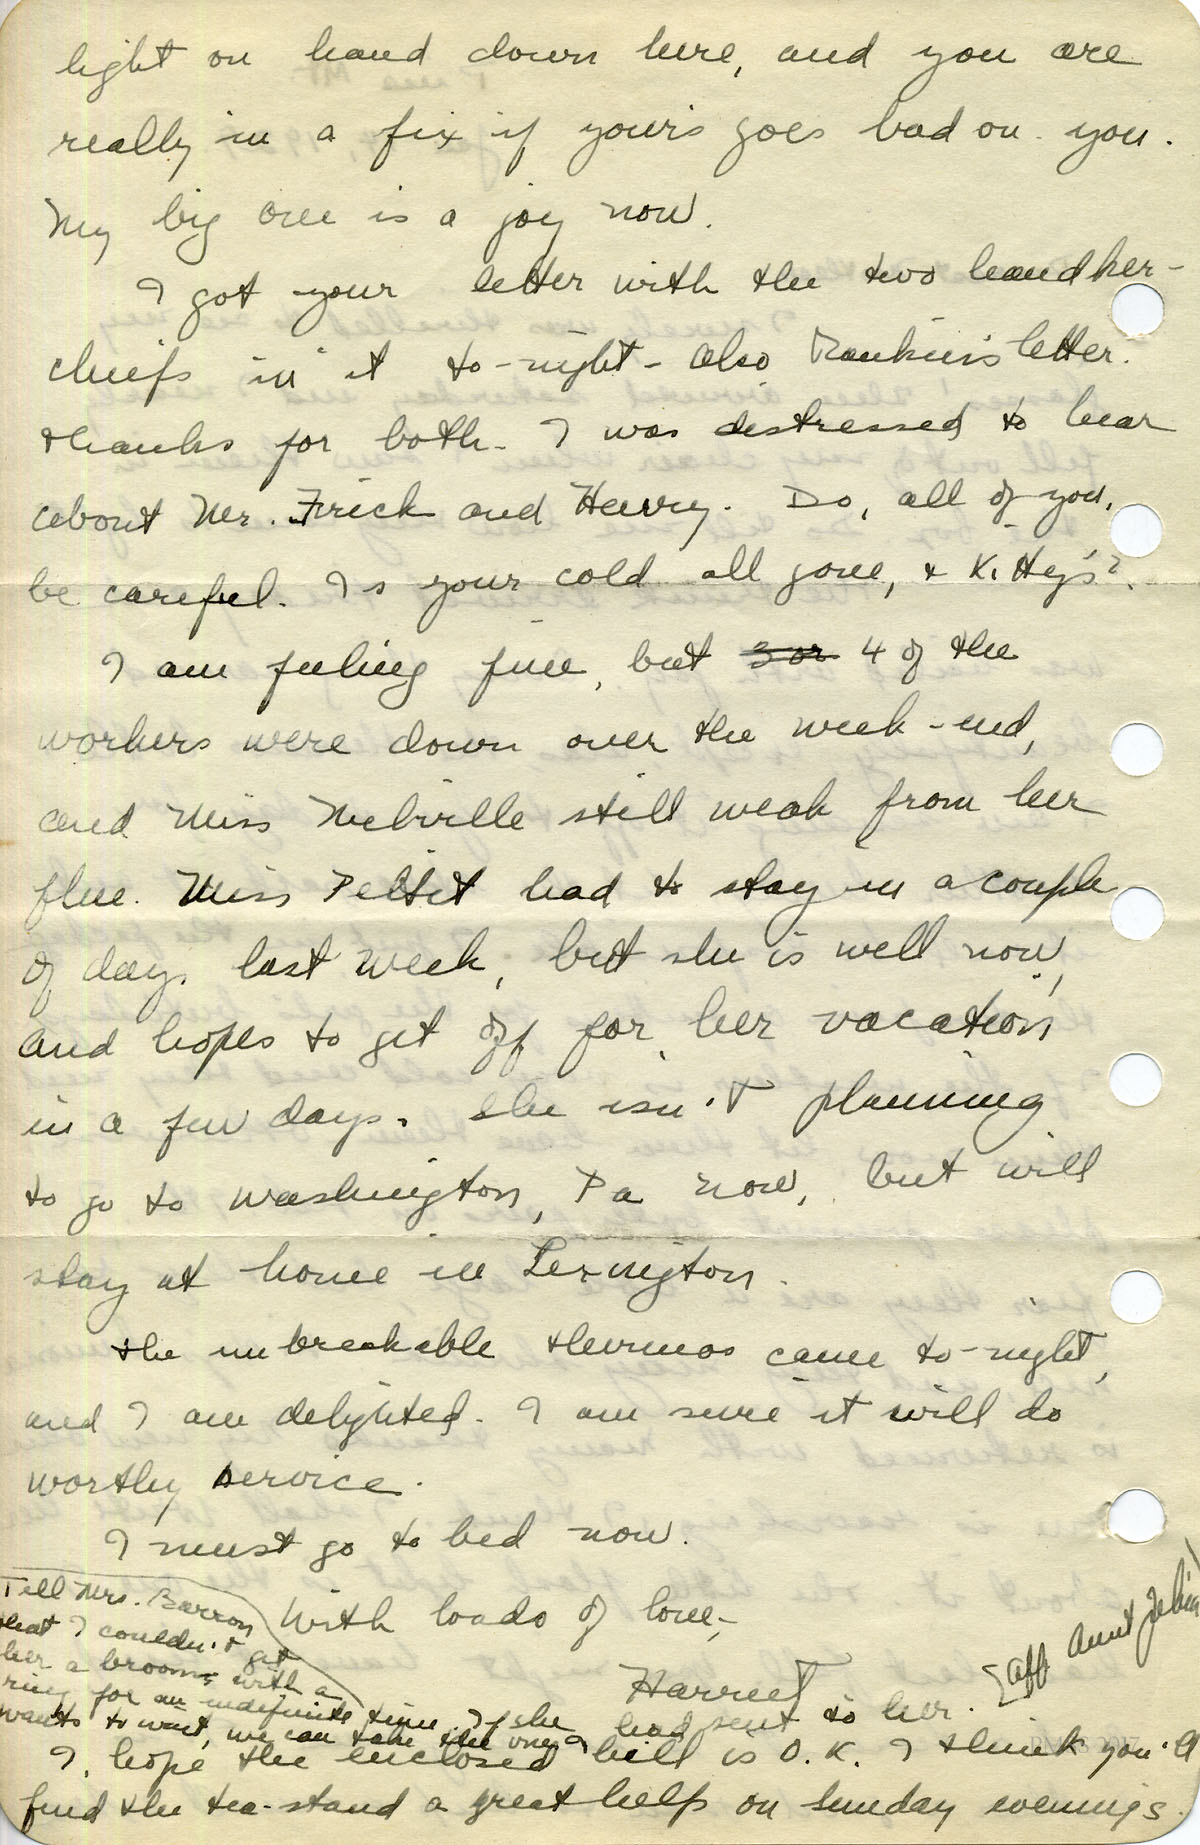 light on hand down here, and you are
really in a fix if yours goes bad on you.
My big one is a joy now.
I got your letter with the two handker-
chiefs in it to-night - also Rankin's letter.
thanks for both - I was distressed to hear
about Mr. Frick and Henry. Do, all of you,
be careful. Is your cold all gone, + Kitty's?
I am feeling fine, but 3 or 4 of the
workers were down over the week-end,
and Miss Melville still weak from her
flue. Miss Pettit had to stay in a couple
of days last week, but she is well now,
and hopes to get off for her vacation
in a few days. She isn't planning
to go to Washington, Pa now, but will
stay at home in Lexington.
the unbreakable thermos came to-night,
and I am delighted. I am sure it will do
worthy service.
I must go to bed now.
With loads of love,
Harriet
Tell Mrs. Barron
that I couldn't get
her a broom with a
ring for an indefinite time. If she
wants to wait, we can take the one I had sent to her.
[off Aunt
I hope the enclosed bill is O.K. I think you'll
find the tea-stand a great help on Sunday evenings.